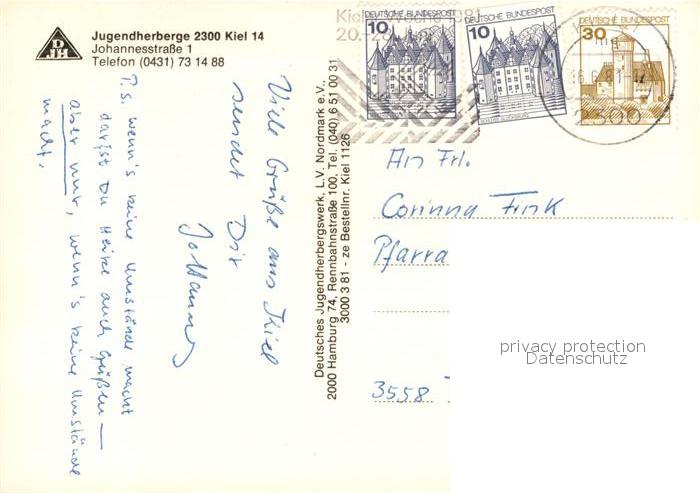 Jugendherberge 2300 Kiel 14
Johannesstraße 1
Telefon (0431) 73 14 88
DJH
Viele Grüße aus Kiel
sendet Dir
Johannes
P.S. wenn's keine Umstände macht
darfst Du Heike auch grüßen —
aber nur, wenn's keine Umstände
macht.
Deutsches Jugendherbergswerk, L.V. Nordmark e.V.,
2000 Hamburg 74, Rennbahnstraße 100, Tel. (040) 6 51 00 31
3000 3 81 - ze Bestellnr. Kiel 1126
DEUTSCHE BUNDESPOST
10
DEUTSCHE BUNDESPOST
10
DEUTSCHE BUNDESPOST
30
2300
An Frl.
Corinna Fink
Pfarra
3558
privacy protection
Datenschutz